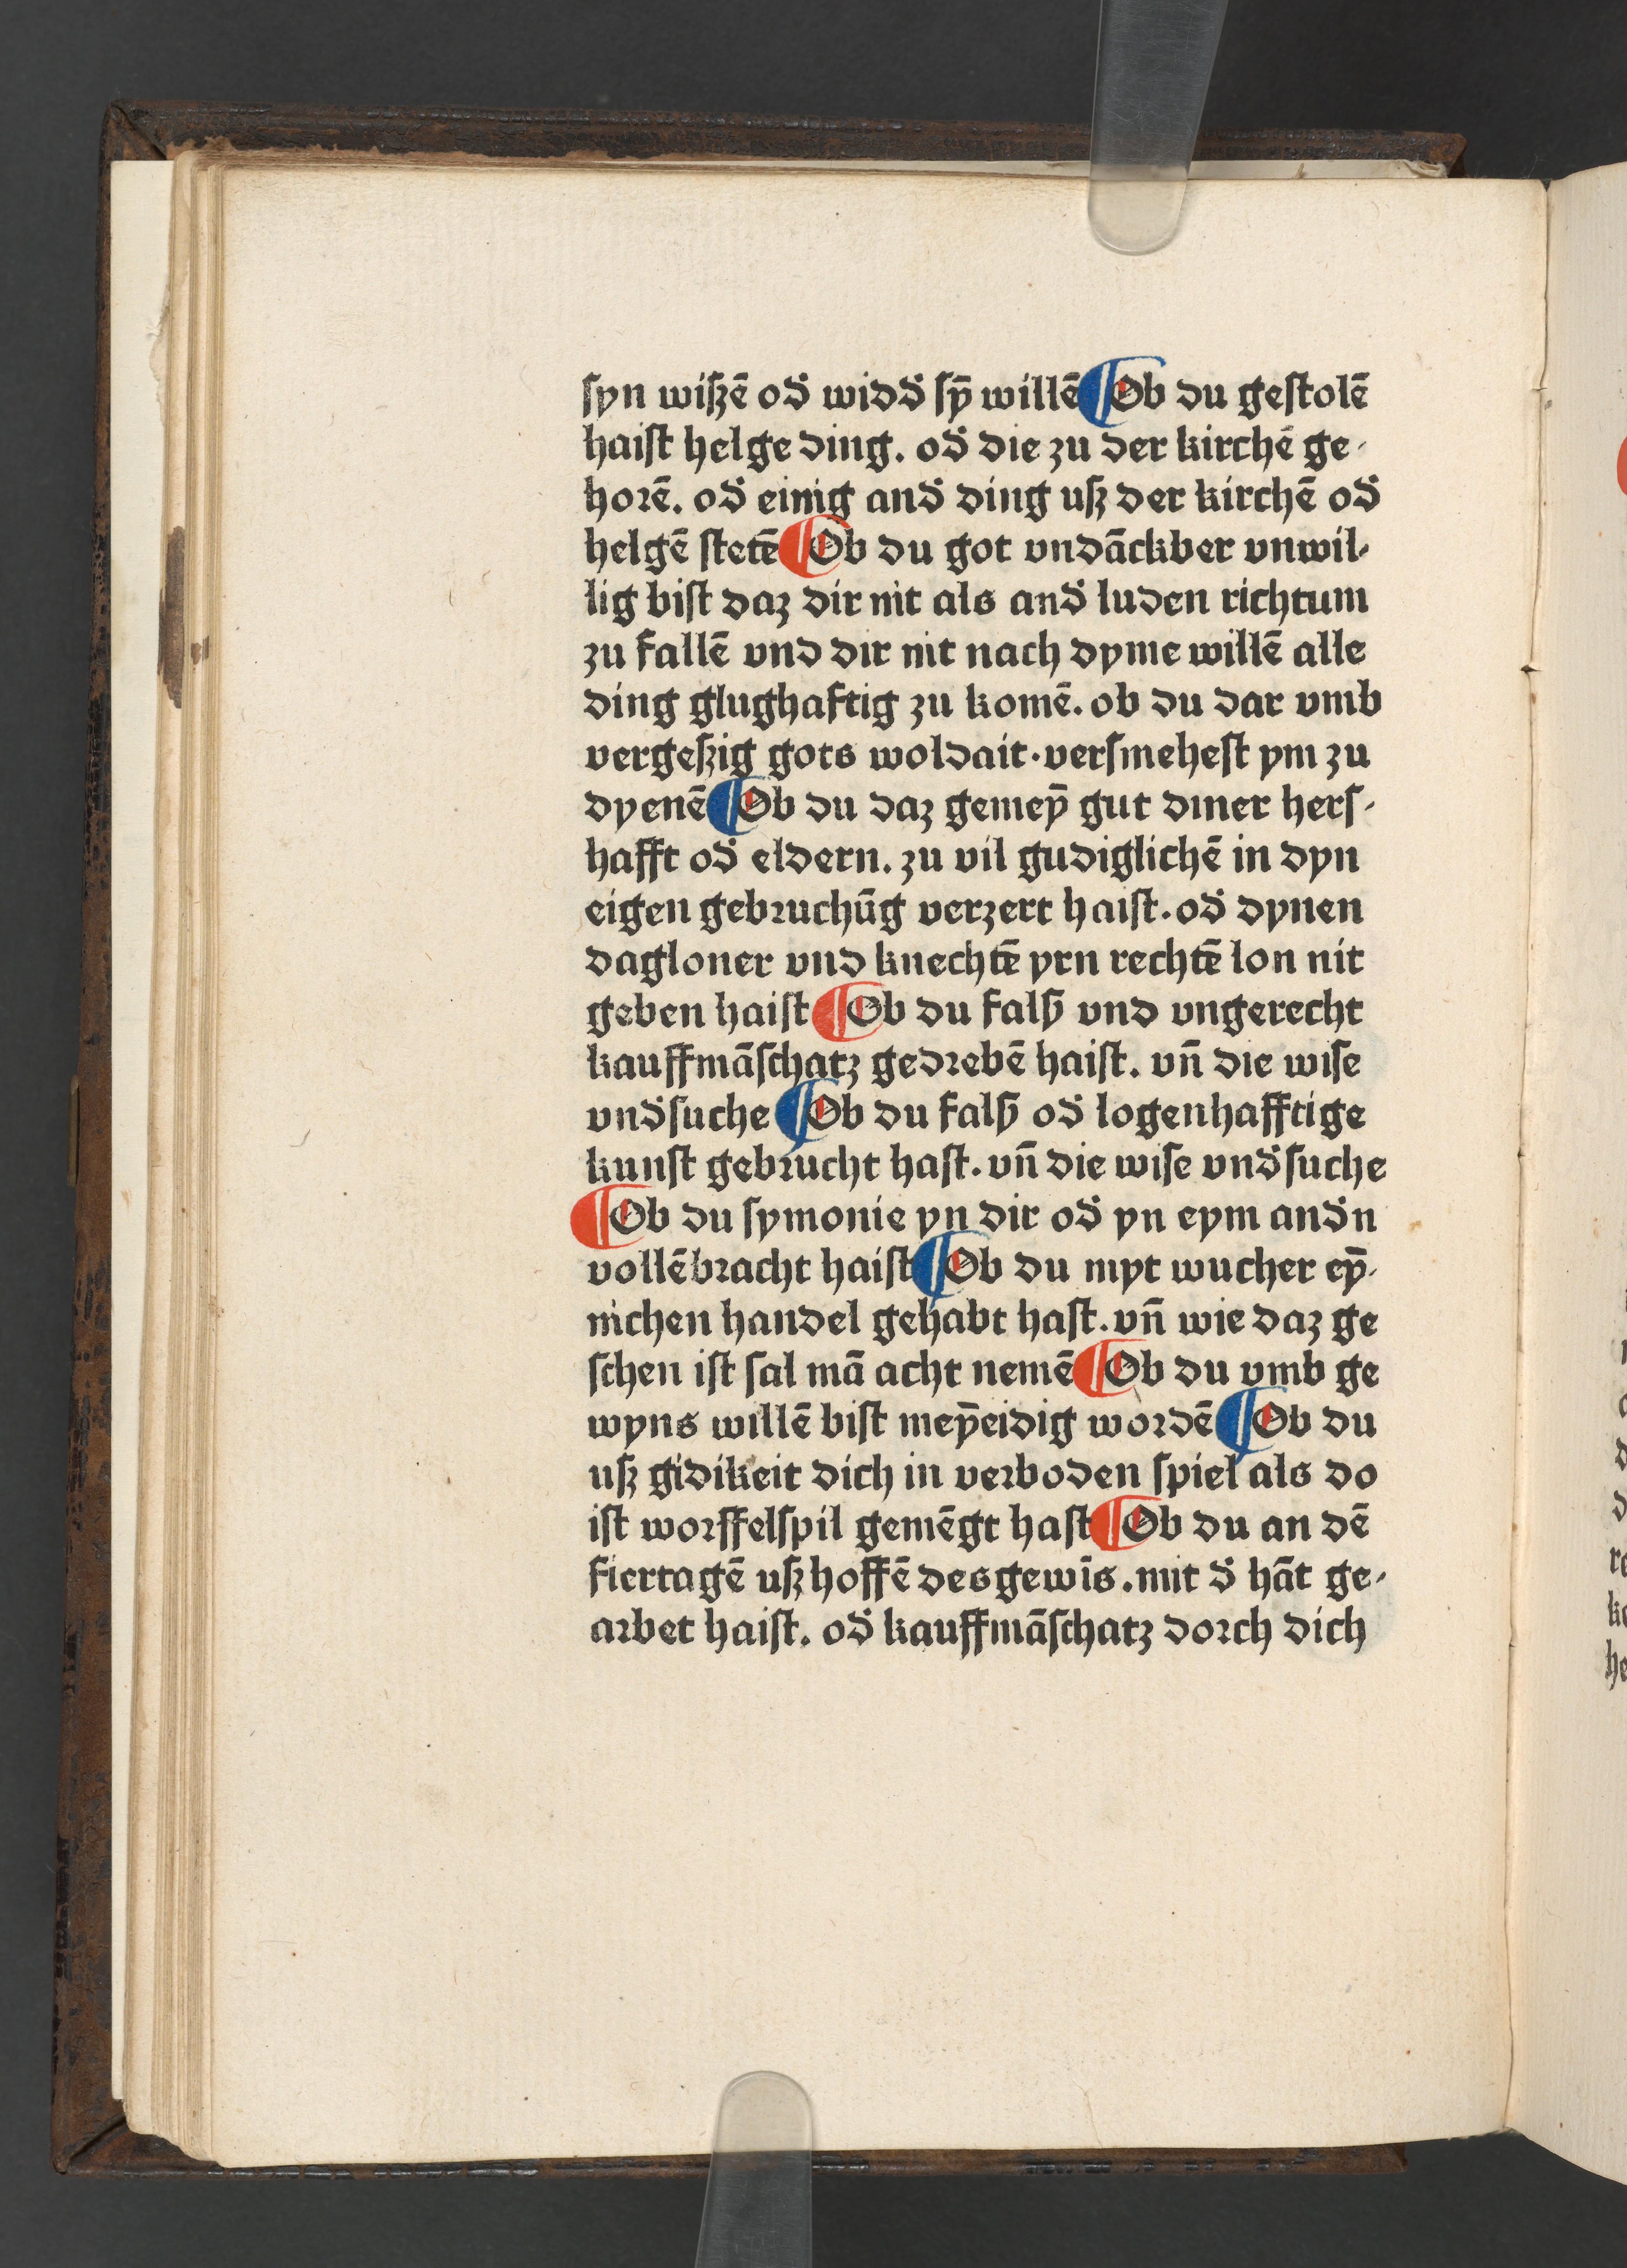 ſyn wiſzē od̾ widd̾ ſȳ willē ¶ Ob du geſtolē
haiſt helge ding. od̾ die zu der kirchē ge⸗
horē. od̾ einig and̾ ding uſz der kirchē od̾
helgē ſtetē ¶ Ob du got vndāckber vnwil⸗
lig biſt daz dir nit als and̾ luden richtum
zu fallē vnd dir nit nach dyme willē alle
ding glughaftig zu komē. ob du dar vmb
vergeſzig gots woldait · verſmeheſt ym zu
dyenē ¶ Ob du daz gemeȳ gut diner herſ⸗
hafft od̾ eldern. zu vil gudiglichē in dyn
eigen gebꝛuchūg verzert haiſt. od̾ dynen
dagloner vnd knechtē yrn rechtē lon nit
geben haiſt ¶ Ob du falſch vnd vngerecht
kauffmāſchatz gedꝛebē haiſt. vn̄ die wiſe
vnd̾ſuche ¶ Ob du falſch od̾ logenhafftige
kunſt gebꝛucht haſt. vn̄ die wiſe vnd̾ſuche
¶ Ob du ſymonie yn dir od̾ yn eym and̾n
vollēbꝛacht haiſt ¶ Ob du myt wucher eȳ⸗
nichen handel gehabt haſt. vn̄ wie daz ge
ſchen iſt ſal mā acht nemē ¶ Ob du vmb ge
wyns willē biſt meȳeidig woꝛdē ¶ Ob du
uſz gidikeit dich in verboden ſpiel als do
iſt woꝛffelſpil gemēgt haſt ¶ Ob du an dē
fiertagē uſz hoffē des gewīs. mit d̾ hāt ge⸗
aꝛbet haiſt. od̾ kauffmāſchatz doꝛch dich